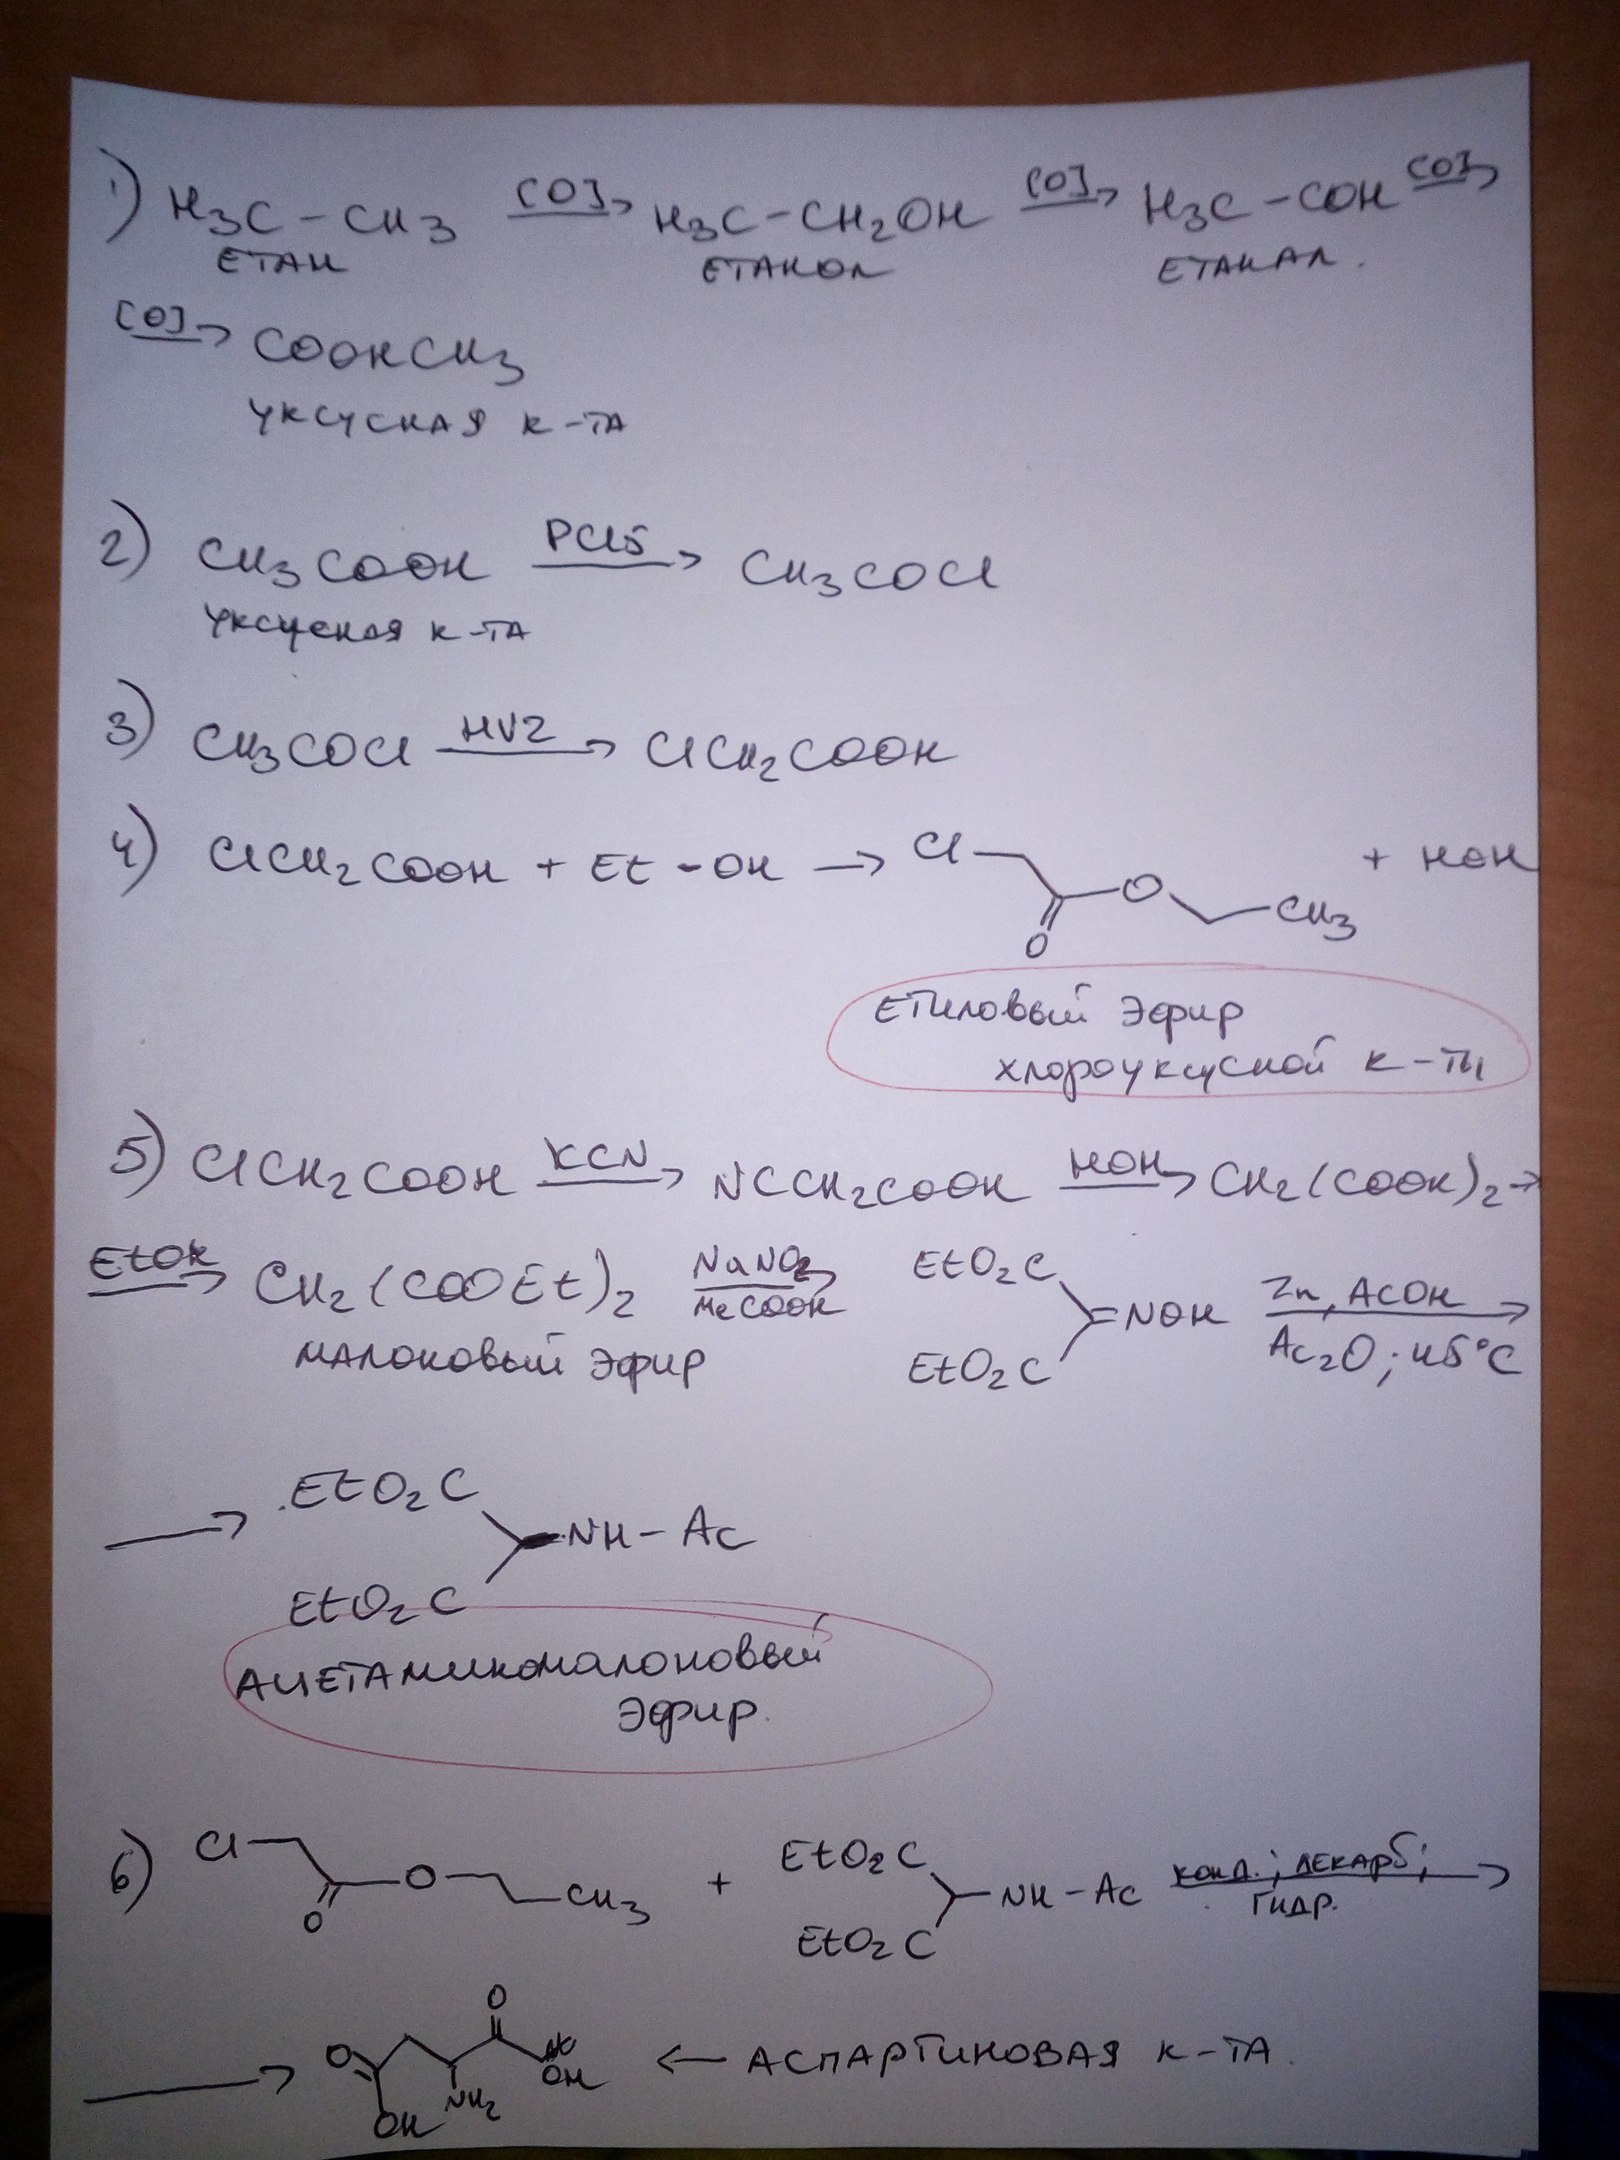 1) H3C-CH3 [O]→ H3C-CH2OH [O]→ H3C-COH [O]→
ЕТАН ЕТАНОЛ ЕТАНАЛ.
[O]→ COOHCH3
УКСУСНАЯ К-ТА
2) CH3COOH PCl5→ CH3COCl
УКСУСНАЯ К-ТА
3) CH3COCl HVZ→ ClCH2COOH
4) ClCH2COOH + Et-OH → Cl O O CH3 + HOH
ЕТИЛОВЫЙ ЭФИР
ХЛОРОУКСУСНОЙ К-ТЫ
5) ClCH2COOH KCN→ NCCH2COOH HOH→ CH2(COOH)2→
EtOH→ CH2(COOEt)2 NaNO2→ MeCOOH EtO2C EtO2C =NOH Zn, AcOH→ Ac2O; 45°C
МАЛОНОВЫЙ ЭФИР
→ EtO2C NH-Ac
EtO2C
АЦЕТАМИНОМАЛОНОВЫЙ
ЭФИР.
6) Cl O O CH3 + EtO2C EtO2C NH-Ac КОНД.; ДЕКАРБ; ГИДР.→
→ O OH NH2 O OH ← АСПАРТИНОВАЯ К-ТА.